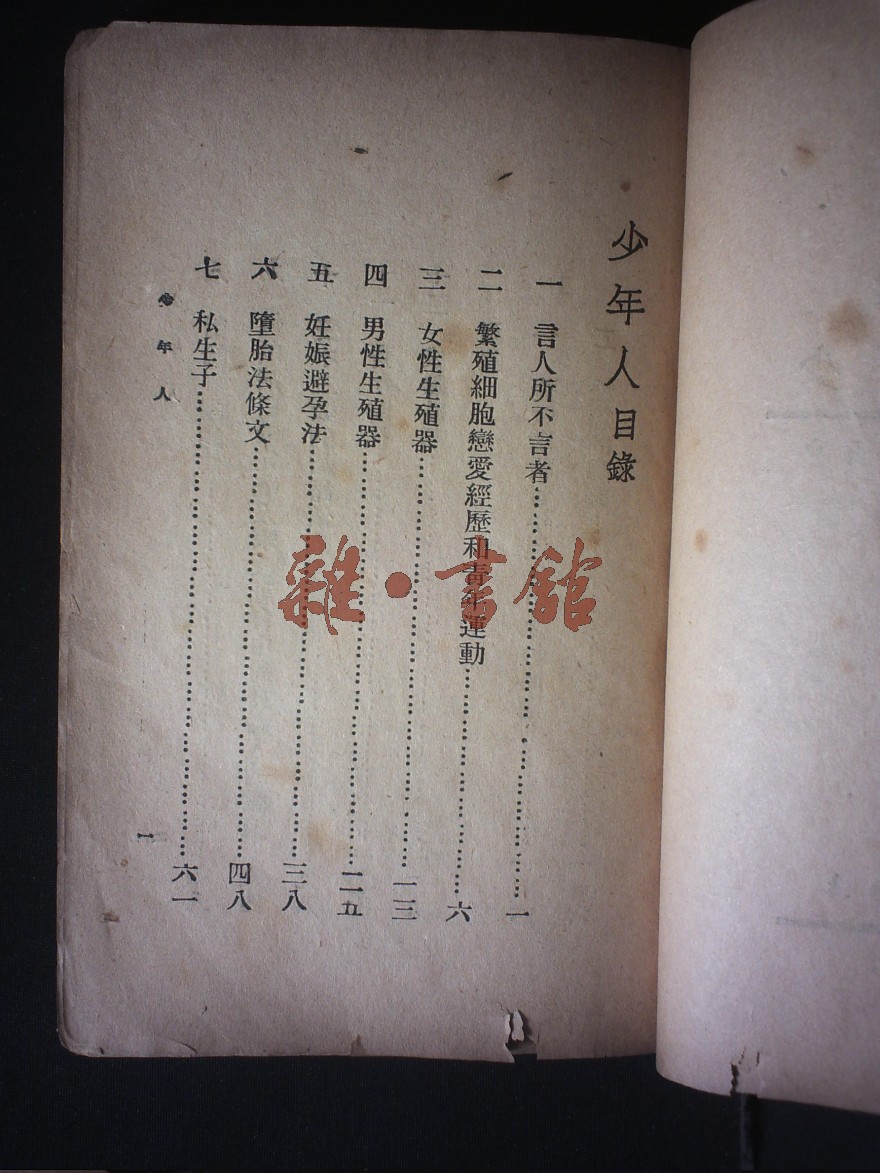 少年人目錄
一 言人所不言者……一
二 繁殖細胞戀愛經歷和青年運動……六
三 女性生殖器……一三
四 男性生殖器……二五
五 妊娠避孕法……三八
六 墮胎法條文……四八
七 私生子……六一
少年人
一
雜·書館